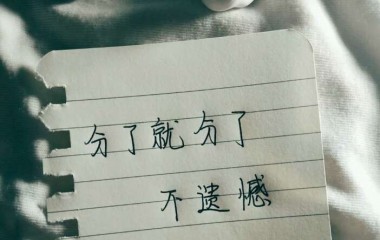 分了就分了
不遗憾